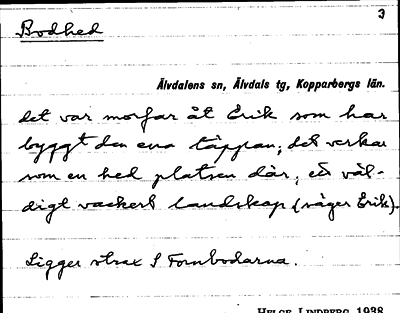 3
Bodhed
Älvdalens sn, Älvdals tg, Kopparbergs län.
det var morfar åt Erik som har
byggt den ena täppan; det verkar
som en hed platsen där, ett väl-
digt vackert landskap (säger Erik).
Ligger strax S Fornbodarna.
HELGE LINDBERG 1938